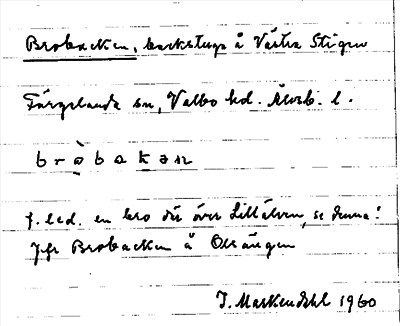 Brobacken, backstuga å Västra Stigen
Färgelanda sn, Valbo hd. Älvsb. l.
b r ò b a k ə n
f. led. en bro där över Lillälven, se denna!
Jfr Brobacken å Olsängen
I. Markendahl 1960